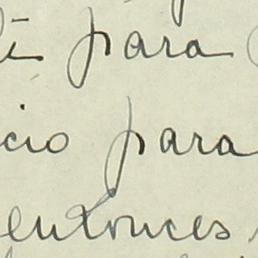 para
cio para
entonces